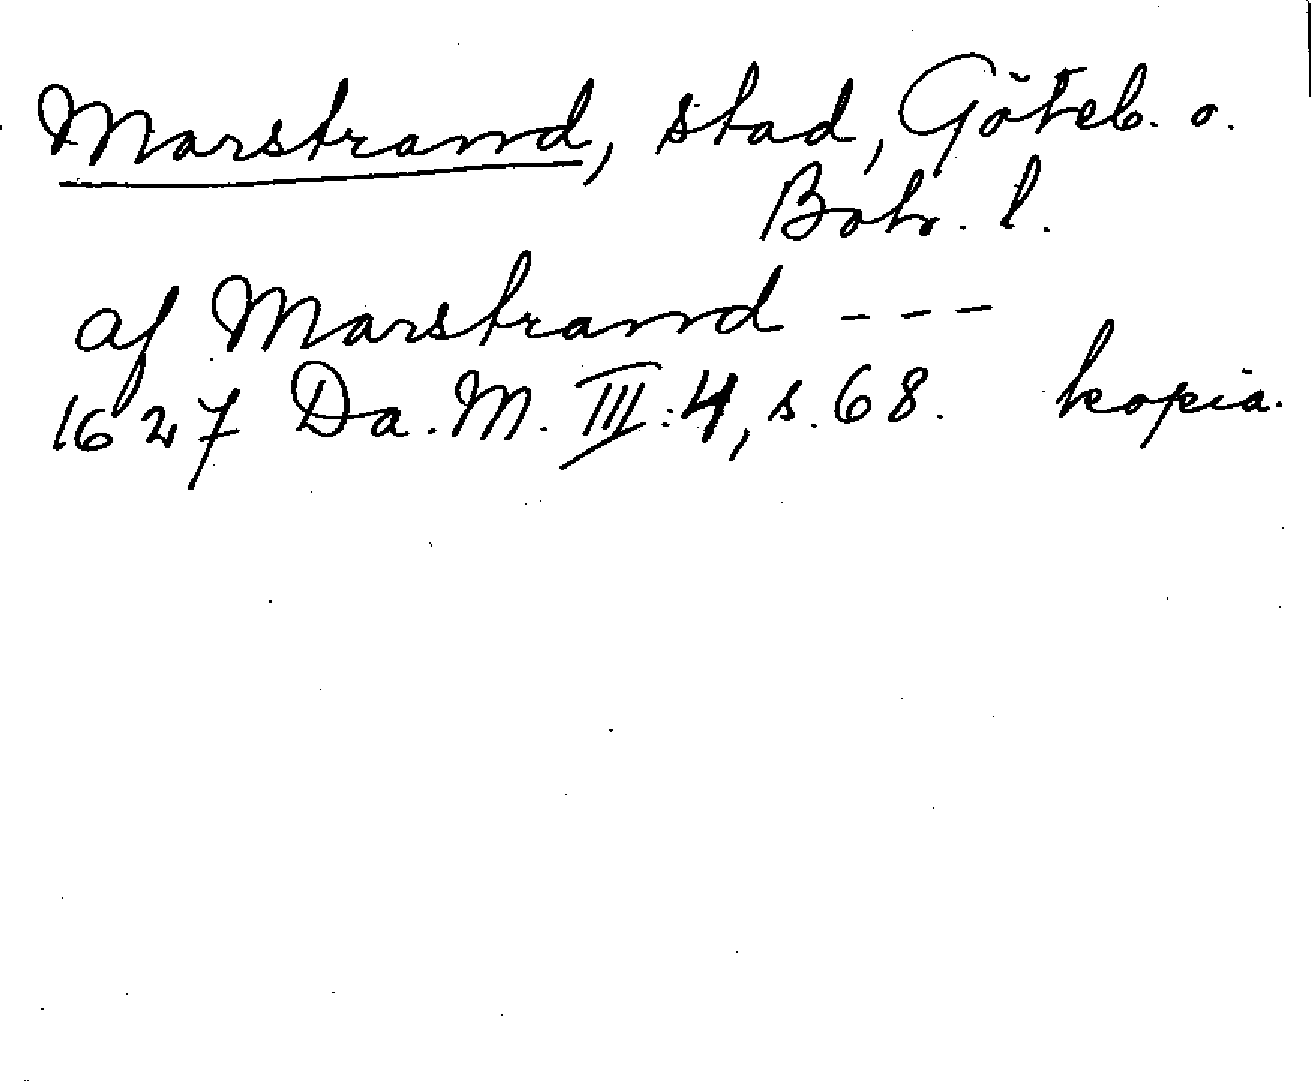 Marstrand, stad, Göteb. o.
Boh. l.
af Marstrand ---
1627 Da. M. III:4, s. 68. kopia.